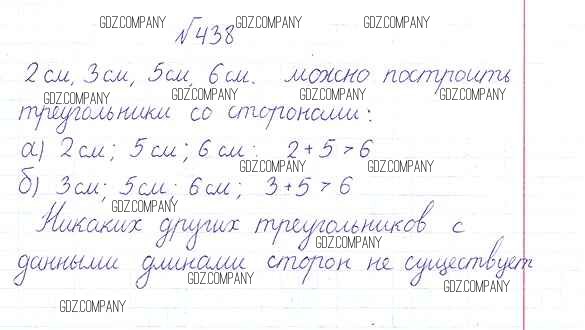 GDZ.COMPANY GDZ.COMPANY GDZ.COMPANY
№438
2см, 3см, 5см, 6см. можно построить
GDZ.COMPANY GDZ.COMPANY GDZ.COMPANY GDZ.COMPANY
треугольники со сторонами:
а) 2см; 5см; 6см: 2+5>6
GDZ.COMPANY GDZ.COMPANY
б) 3см; 5см; 6см; 3+5>6
GDZ.COMPANY
Никаких других треугольников с
GDZ.COMPANY
данными длинами сторон не существует
GDZ.COMPANY GDZ.COMPANY
GDZ.COMPANY